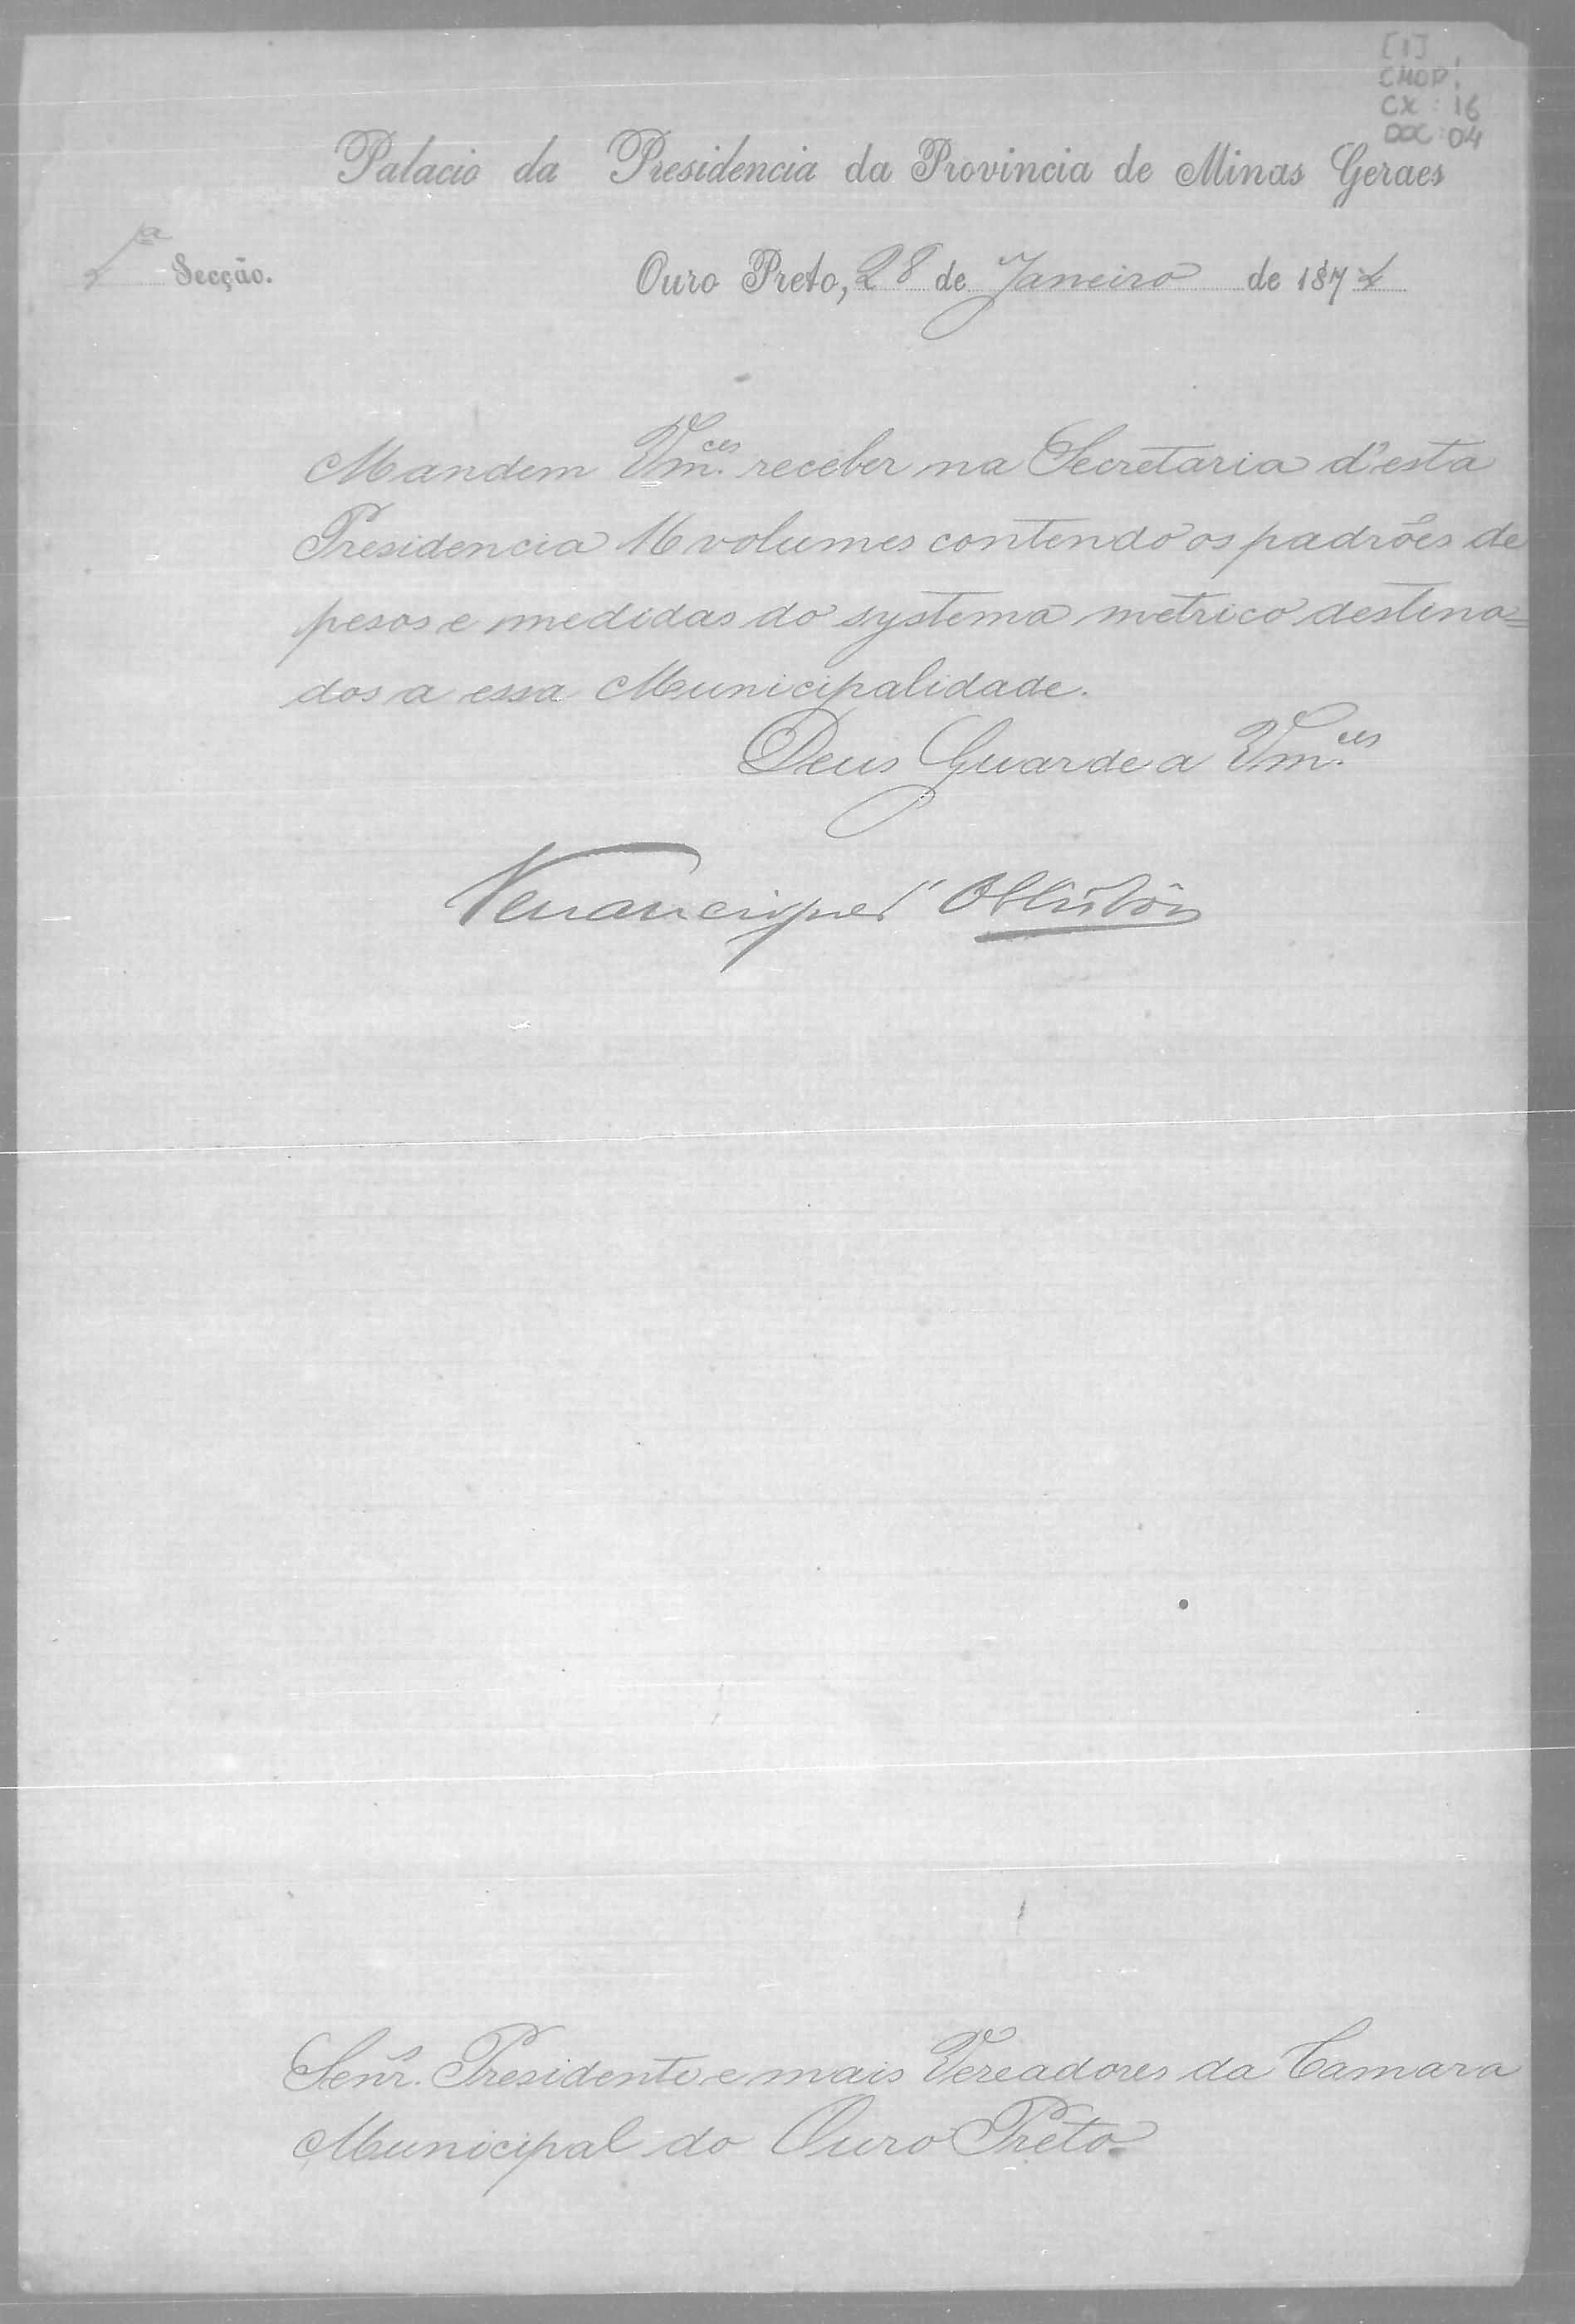 [1]
CMOP.
CX: 16
DOC: 04
Palacio da Presidencia da Provincia de Minas Geraes
Secção.
Ouro Preto, 28 de Janeiro de 187
Mandem Vm.ces receber na Secretaria d'esta
Presidencia 16 volumes contendo os padrões de
pesos e medidas do systema metrico destina=
dos a essa Municipalidade.
Deus Guarde a Vm.ces
Senr.s Presidente e mais Vereadores da Camara
Municipal do Ouro Preto.